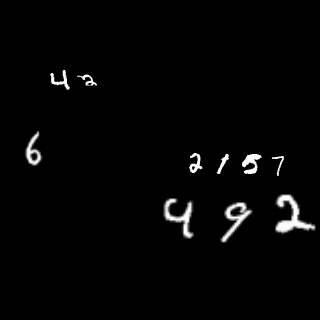 42
6
2157
492